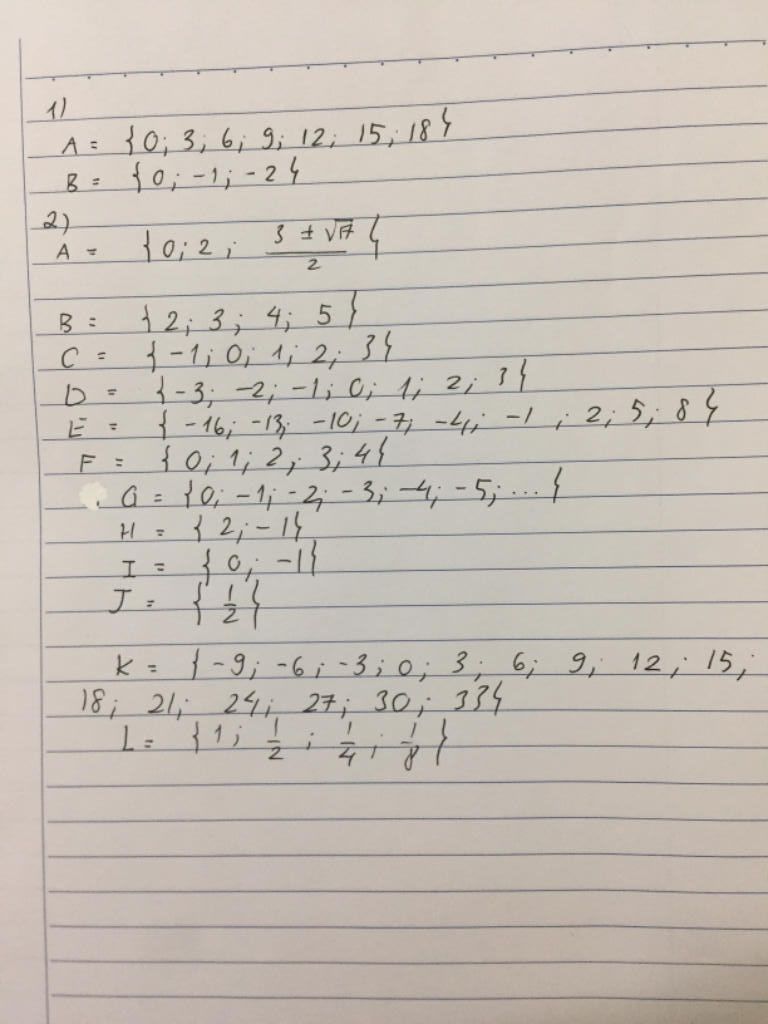 1)
A = {0; 3; 6; 9; 12; 15; 18}
B = {0; -1; -2}
2)
A = {0; 2; (3 ± √17)/2}
B = {2; 3; 4; 5}
C = {-1; 0; 1; 2; 3}
D = {-3; -2; -1; 0; 1; 2; 3}
E = {-16; -13; -10; -7; -4; -1; 2; 5; 8}
F = {0; 1; 2; 3; 4}
G = {0; -1; -2; -3; -4; -5; ...}
H = {2; -1}
I = {0; -1}
J = {1/2}
K = {-9; -6; -3; 0; 3; 6; 9; 12; 15;
18; 21; 24; 27; 30; 33}
L = {1; 1/2; 1/4; 1/8}